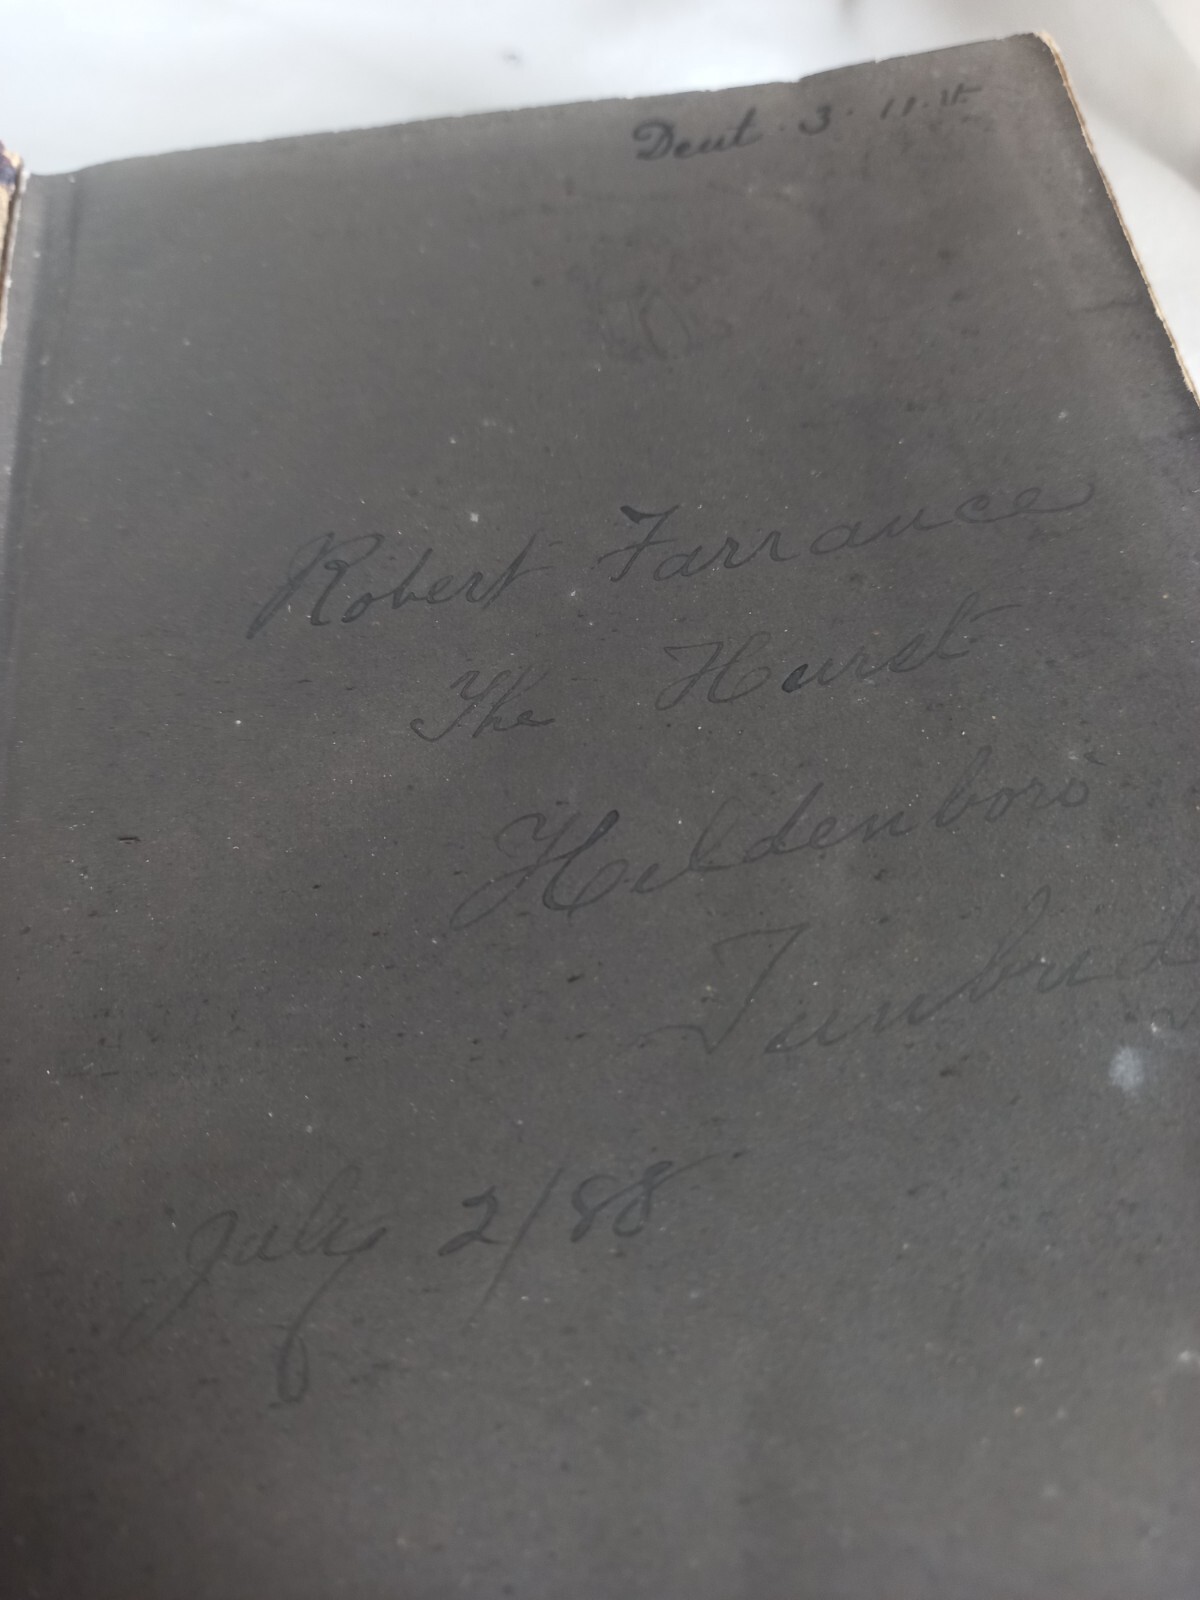 Deut. 3. 11. v.
Robert Farrance
The Hurst
Hildenboro'
Tunbrid
July 2/88